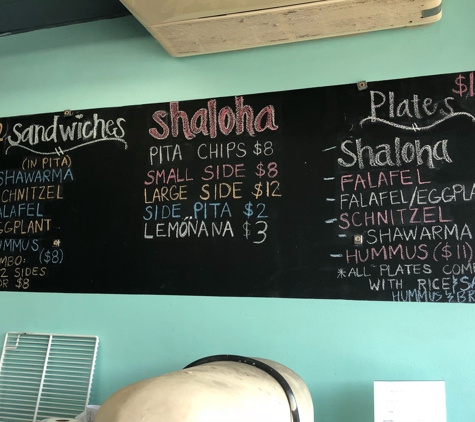 Sandwiches
(IN PITA)
SHAWARMA
SCHNITZEL
ALAFEL
GGPLANT
UMMUS ($8)
OMBO:
2 SIDES
OR $8
shaloha
PITA CHIPS $8
SMALL SIDE $8
LARGE SIDE $12
SIDE PITA $2
LEMONANA $3
$1
Plates
- Shaloha
- FALAFEL
- FALAFEL/EGGPLA
- SCHNITZEL
- SHAWARMA
- HUMMUS ($11)
*ALL PLATES COM
WITH RICE
HUMMUS & BR